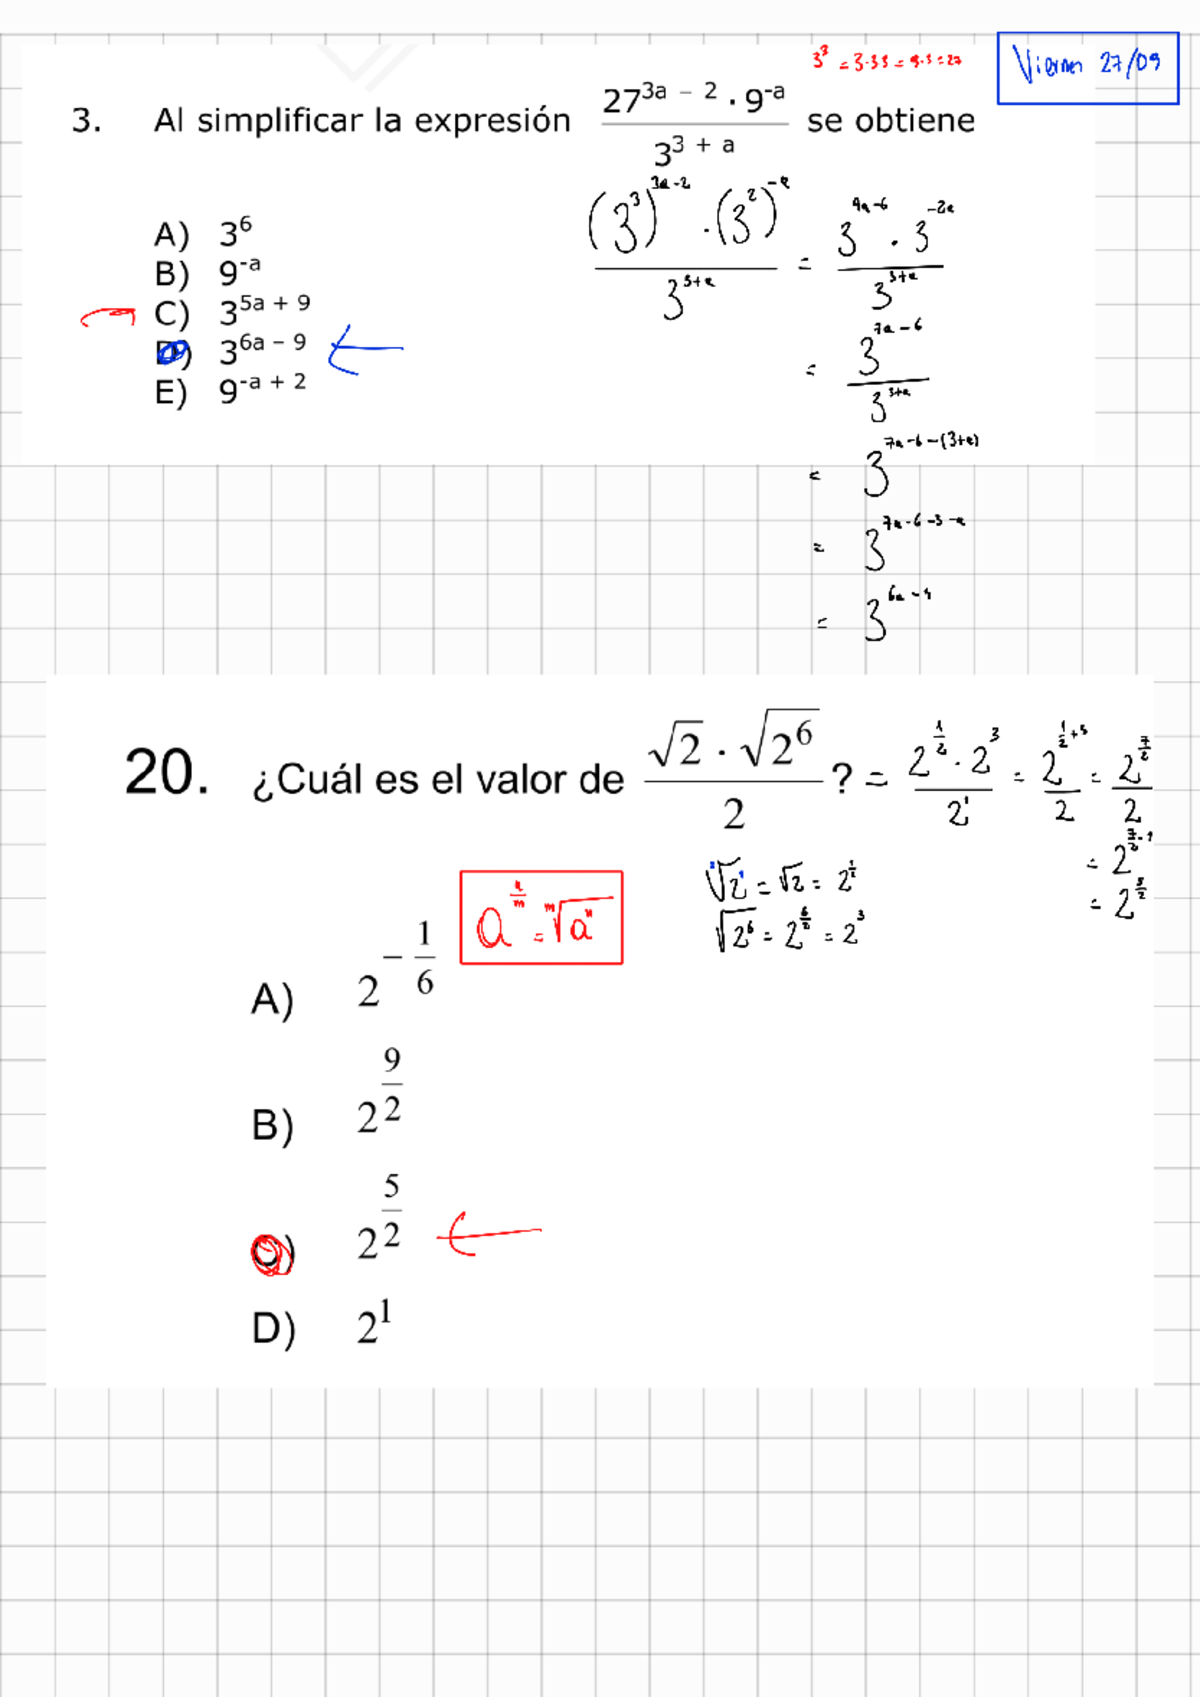 3³ = 3·3·3 = 9·3 = 27
Viernes 27/09
3. Al simplificar la expresión \frac{27^{3a - 2} · 9^{-a}}{3^{3 + a}} se obtiene
\frac{(3³)^{3a-2} · (3²)^{-a}}{3^{3+a}} = \frac{3^{9a-6} · 3^{-2a}}{3^{3+a}}
A) 3^{6}
B) 9^{-a}
C) 3^{5a + 9}
D) 3^{6a – 9}
E) 9^{-a + 2}
= \frac{3^{7a-6}}{3^{3+a}}
= 3^{7a-6-(3+a)}
= 3^{7a-6-3-a}
= 3^{6a-9}
20. ¿Cuál es el valor de \frac{\sqrt{2} · \sqrt{2^{6}}}{2} ? = \frac{2^{\frac{1}{2}} · 2^{3}}{2^{1}} = \frac{2^{\frac{1}{2}+3}}{2} = \frac{2^{\frac{7}{2}}}{2}
= 2^{\frac{7}{2}-1}
= 2^{\frac{5}{2}}
\sqrt[2]{2^{1}} = \sqrt{2} = 2^{\frac{1}{2}}
\sqrt{2^{6}} = 2^{\frac{6}{2}} = 2^{3}
a^{\frac{n}{m}} = \sqrt[m]{a^{n}}
A) 2^{-\frac{1}{6}}
B) 2^{\frac{9}{2}}
C) 2^{\frac{5}{2}}
D) 2^{1}